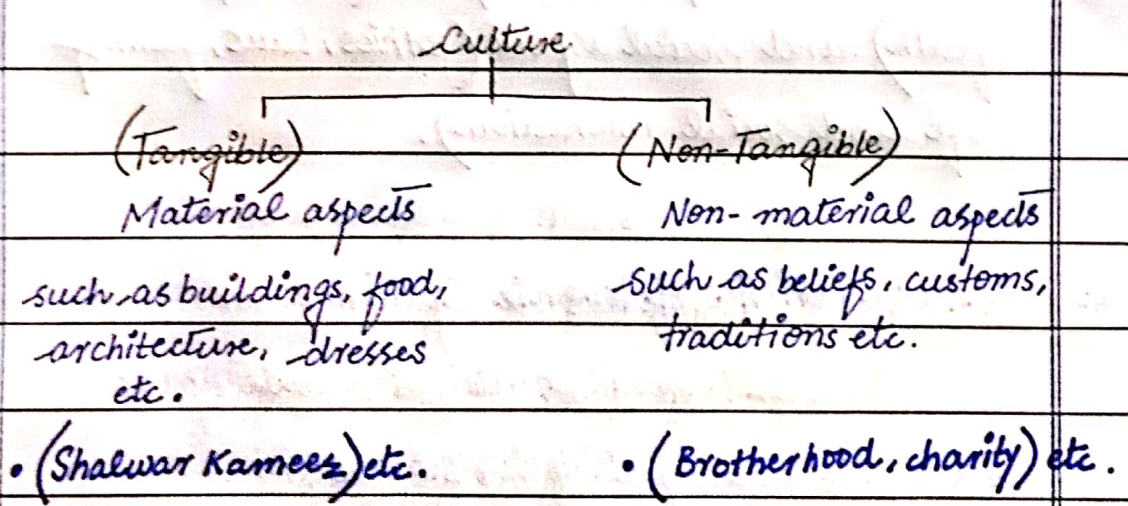 Culture
(Tangible)
Material aspects
such as buildings, food,
architecture, dresses
etc.
• (Shalwar Kameez) etc.
(Non-Tangible)
Non-material aspects
such as beliefs, customs,
traditions etc.
• (Brotherhood, charity) etc.